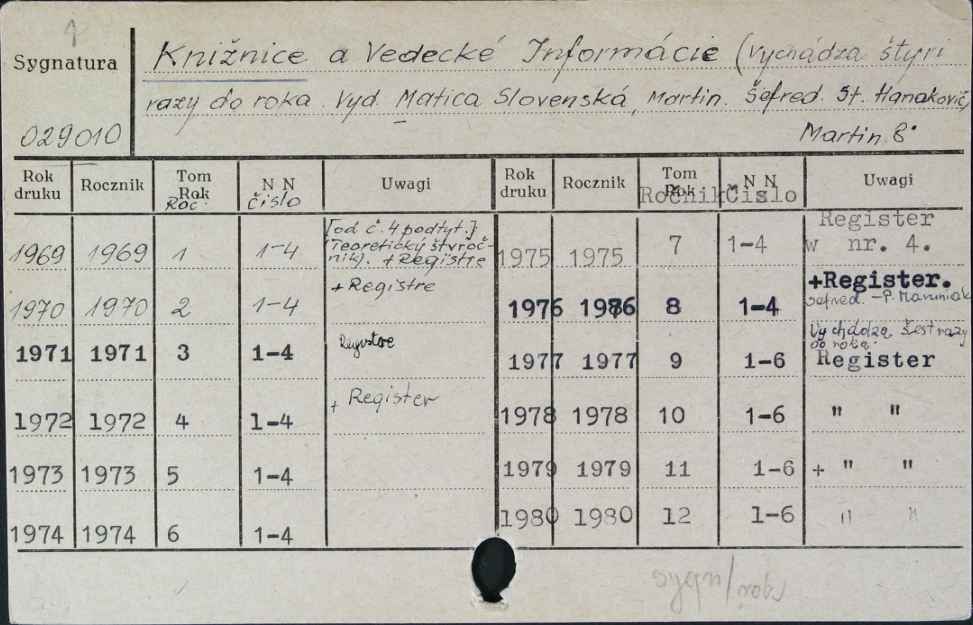 Sygnatura
029010
Knižnice a Vedecké Informácie (Vychádza štyri
razy do roka. Vyd. Matica Slovenská, Martin. Šéfred. Št. Hanakovič,
Martin 8°
Rok druku Rocznik Tom Rok N N Uwagi Rok druku Rocznik Tom Rok N N Uwagi
Roč. číslo Ročnik Čislo
1969 1969 1 1-4 [od č. 4 podtyt.] (Teoretický štvročník). + Registre
1970 1970 2 1-4 + Registre
1971 1971 3 1-4
1972 1972 4 1-4 + Register
1973 1973 5 1-4
1974 1974 6 1-4
1975 1975 7 1-4 Register w nr. 4.
1976 1976 8 1-4 +Register. šéfred. - P.
1977 1977 9 1-6 Vychádza šesť razy do roka. Register
1978 1978 10 1-6 " "
1979 1979 11 1-6 + " "
1980 1980 12 1-6 " "